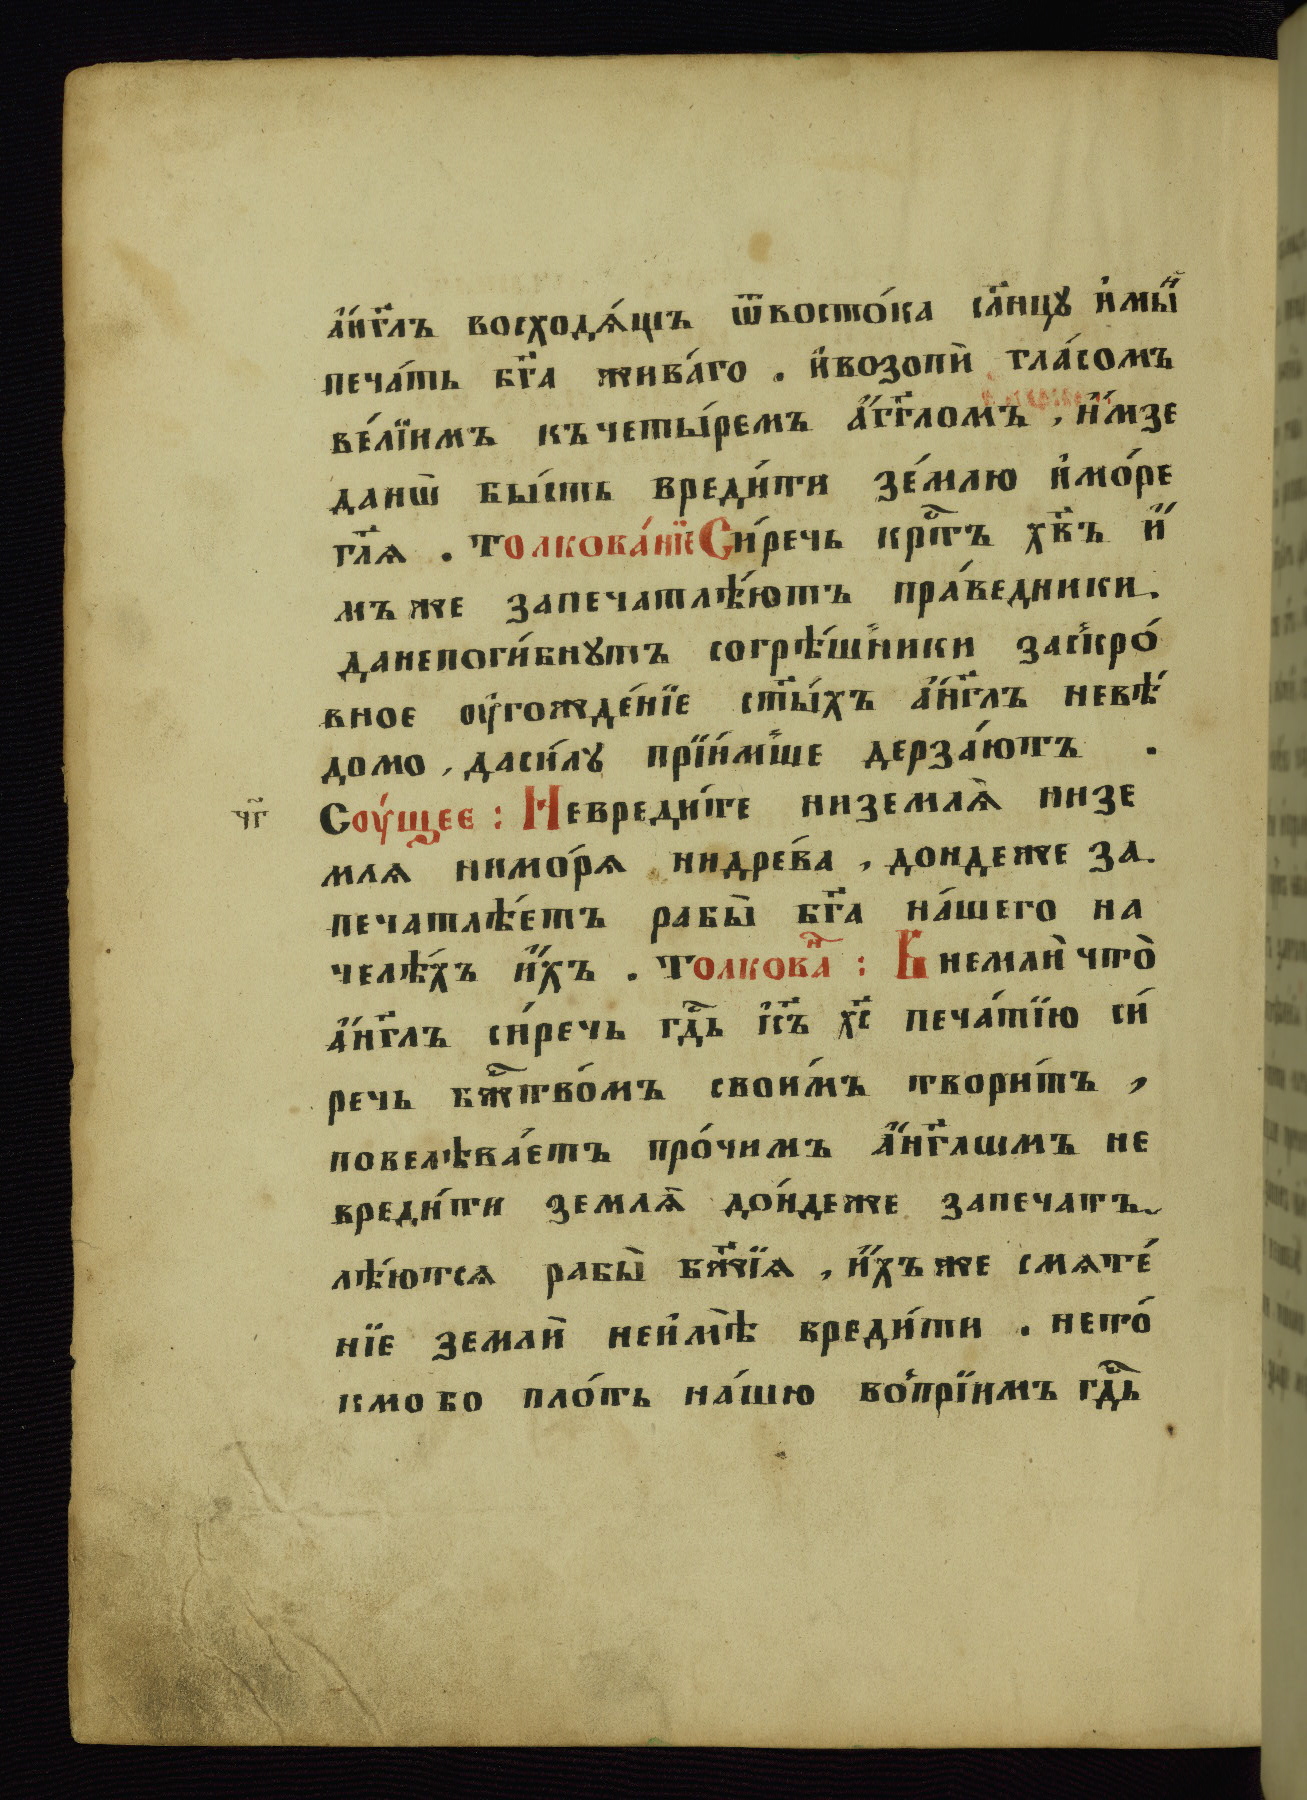 а҆́нг҃лъ восходѧ́щъ ѿвосто́ка сл҃нцꙋ и҆мы́й
печа́ть бг҃а жива́го . и҆возопѝ гла́сомъ
ве́лїимъ къчеты́ремъ а҆́гг҃ломъ , и҆́мзе
даноⷭ҇ бы́сть вреди́ти зе́млю и҆мо́ре
гл҃ѧ . Толкова́нїе Си́речь крⷭ҇тъ хв҃ъ и҆́
мъже запечатлѣ́ютъ пра́ведники .
данепоги́бнꙋтъ согрѣ́шники заскро́
вное оу҆гожде́нїе ст҃ы́хъ а҆́нг҃лъ невѣ́
домо , даси́лꙋ прїи́мше дерза́ютъ .
чг҃ Соу́щее : Невреди́те низемлѧ̀ низе
млѧ нимо́рѧ нидре́ва , дондеже за
печатлѣ́етъ рабы̀ бг҃а на́шего на
челѣ́хъ и҆́хъ . Толковаⷩ҇ : Внемлѝ что̀
а҆́нг҃лъ си́речь гдⷭ҇ь і҆с҃ъ хс҃ печа́тїю си́
речь бжⷭ҇тво́мъ свои́мъ твори́тъ ,
повелѣва́етъ про́чимъ а҆́нг҃лѡмъ не
вреди́ти землѧ̀ до́ндеже запечатъ
лѣ́ютсѧ рабы̀ бж҃їѧ , и҆́хъже смѧте́
нїе землѝ неи҆мѣ̀ вреди́ти . непо́
кмово пло́ть на́шю во́прїимъ гдⷭ҇ь